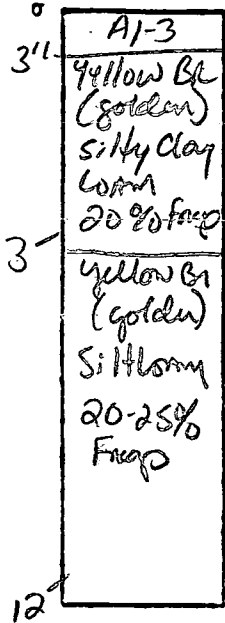 0
A1-3
3"
Yellow Br
(golden)
silty Clay
Loam
20% Frag
3
yellow Br
(golden)
Silt loam
20-25%
Frag
12